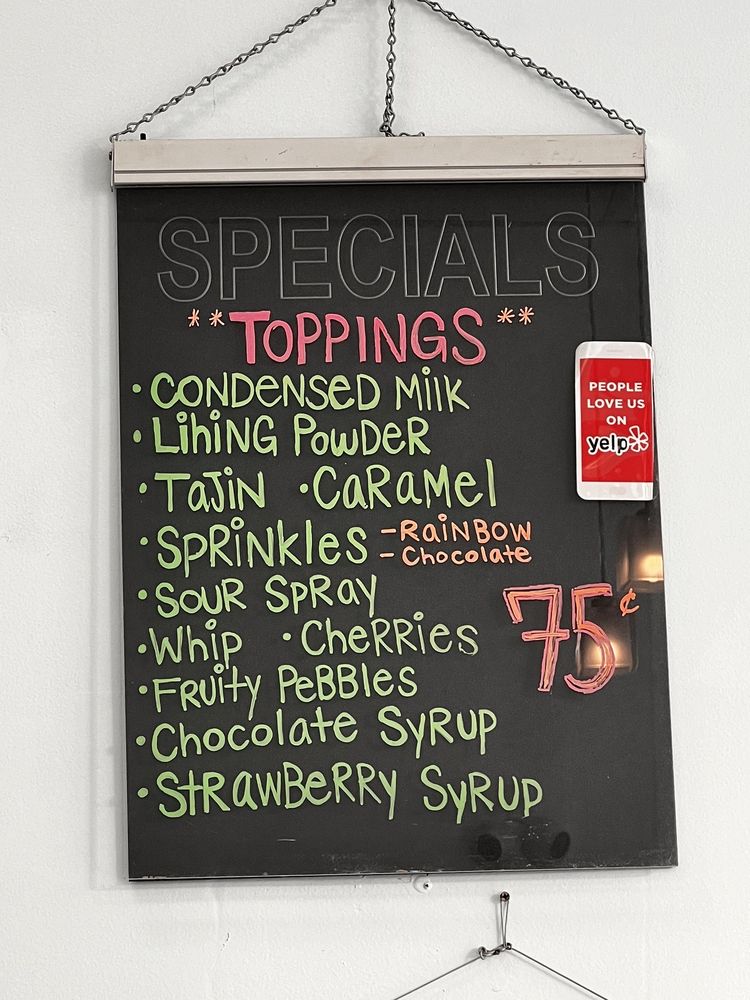 SPECIALS
**TOPPINGS**
• CONDENSED MilK
• LiHiNG POWDER
• TAJiN • CARAMEl
• SPRiNKlES - RAiNBOW
- Chocolate
• SOUR SPRAY
• Whip • CheRRies
• FRUity PeBBles
• Chocolate SyRUP
• StRawBeRRy SyRUP
75¢
PEOPLE
LOVE US
ON
yelp